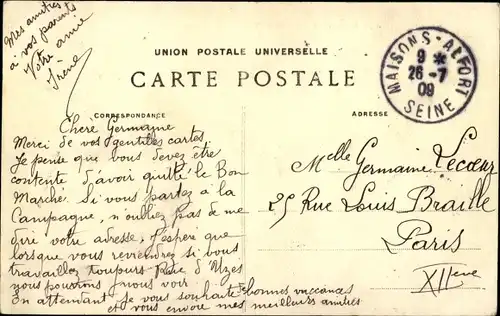 Mes amitiés
à vos parents
Votre amie
Irène
UNION POSTALE UNIVERSELLE
CARTE POSTALE
MAISONS-ALFORT
9 *
26-7
09
SEINE
CORRESPONDANCE
ADRESSE
Chere Germaine
Merci de vos gentilles cartes
Je pense que vous devez être
contente d'avoir quitté le Bon
Marché. Si vous partez à la
Campagne, n'oubliez pas de me
dire votre adresse. J'espère que
lorsque vous reviendrez si vous
travaillez toujours rue d'Uzes
nous pourrons nous voir.
En attendant je vous souhaite bonnes vacances
et vous envoie mes meilleurs amitiés
Melle Germaine Lecoeur
25 Rue Louis Braille
Paris
XIIeme